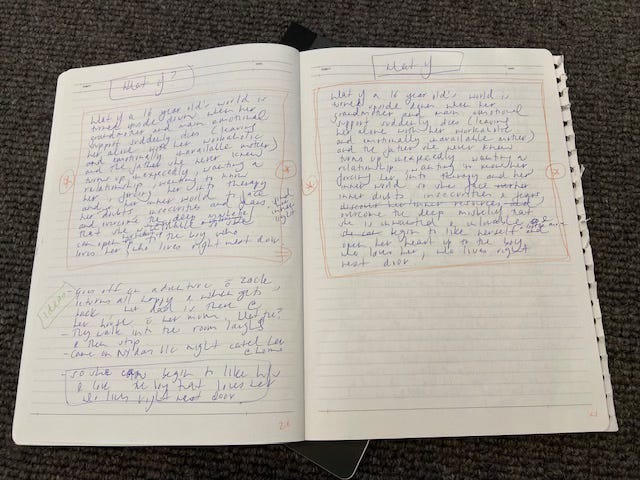 What if?
What if a 16 year old's world is
turned upside down when her
grandmother and main emotional
support suddenly dies (leaving
her alone with her workaholic
and emotionally unavailable mother)
and the father she never knew
turns up unexpectedly wanting a
relationship, wanting to know
her, forcing her into therapy
and her inner world to face
her doubts, insecurities and fears
and overcome the deep
that she
can open to the boy who
loves her (who lives right next door
ideas
Goes off on an adventure c̄ Zack
returns all happy & when gets
back her dad is there
her house c̄ her mum,
- They walk into the room laughing
& then stop.
- Came on NY day b/c might catch her
@ home
- so she can begin to like her
& love the boy that loves her
who lives right next door.
What if
What if a 16 year old's world is
turned upside down when her
grandmother and main emotional
support suddenly dies (leaving
her alone with her workaholic
and emotionally unavailable mother)
and the father she never knew
turns up unexpectedly wanting a
relationship wanting to
forcing her into therapy and her
inner world to face
inner doubts insecurities & fears
discover her inner resources and
overcome the deep misbelief that
she is unwanted & unlovable
she can begin to like herself and
open her heart up to the boy
who loves her, who lives right
next door.